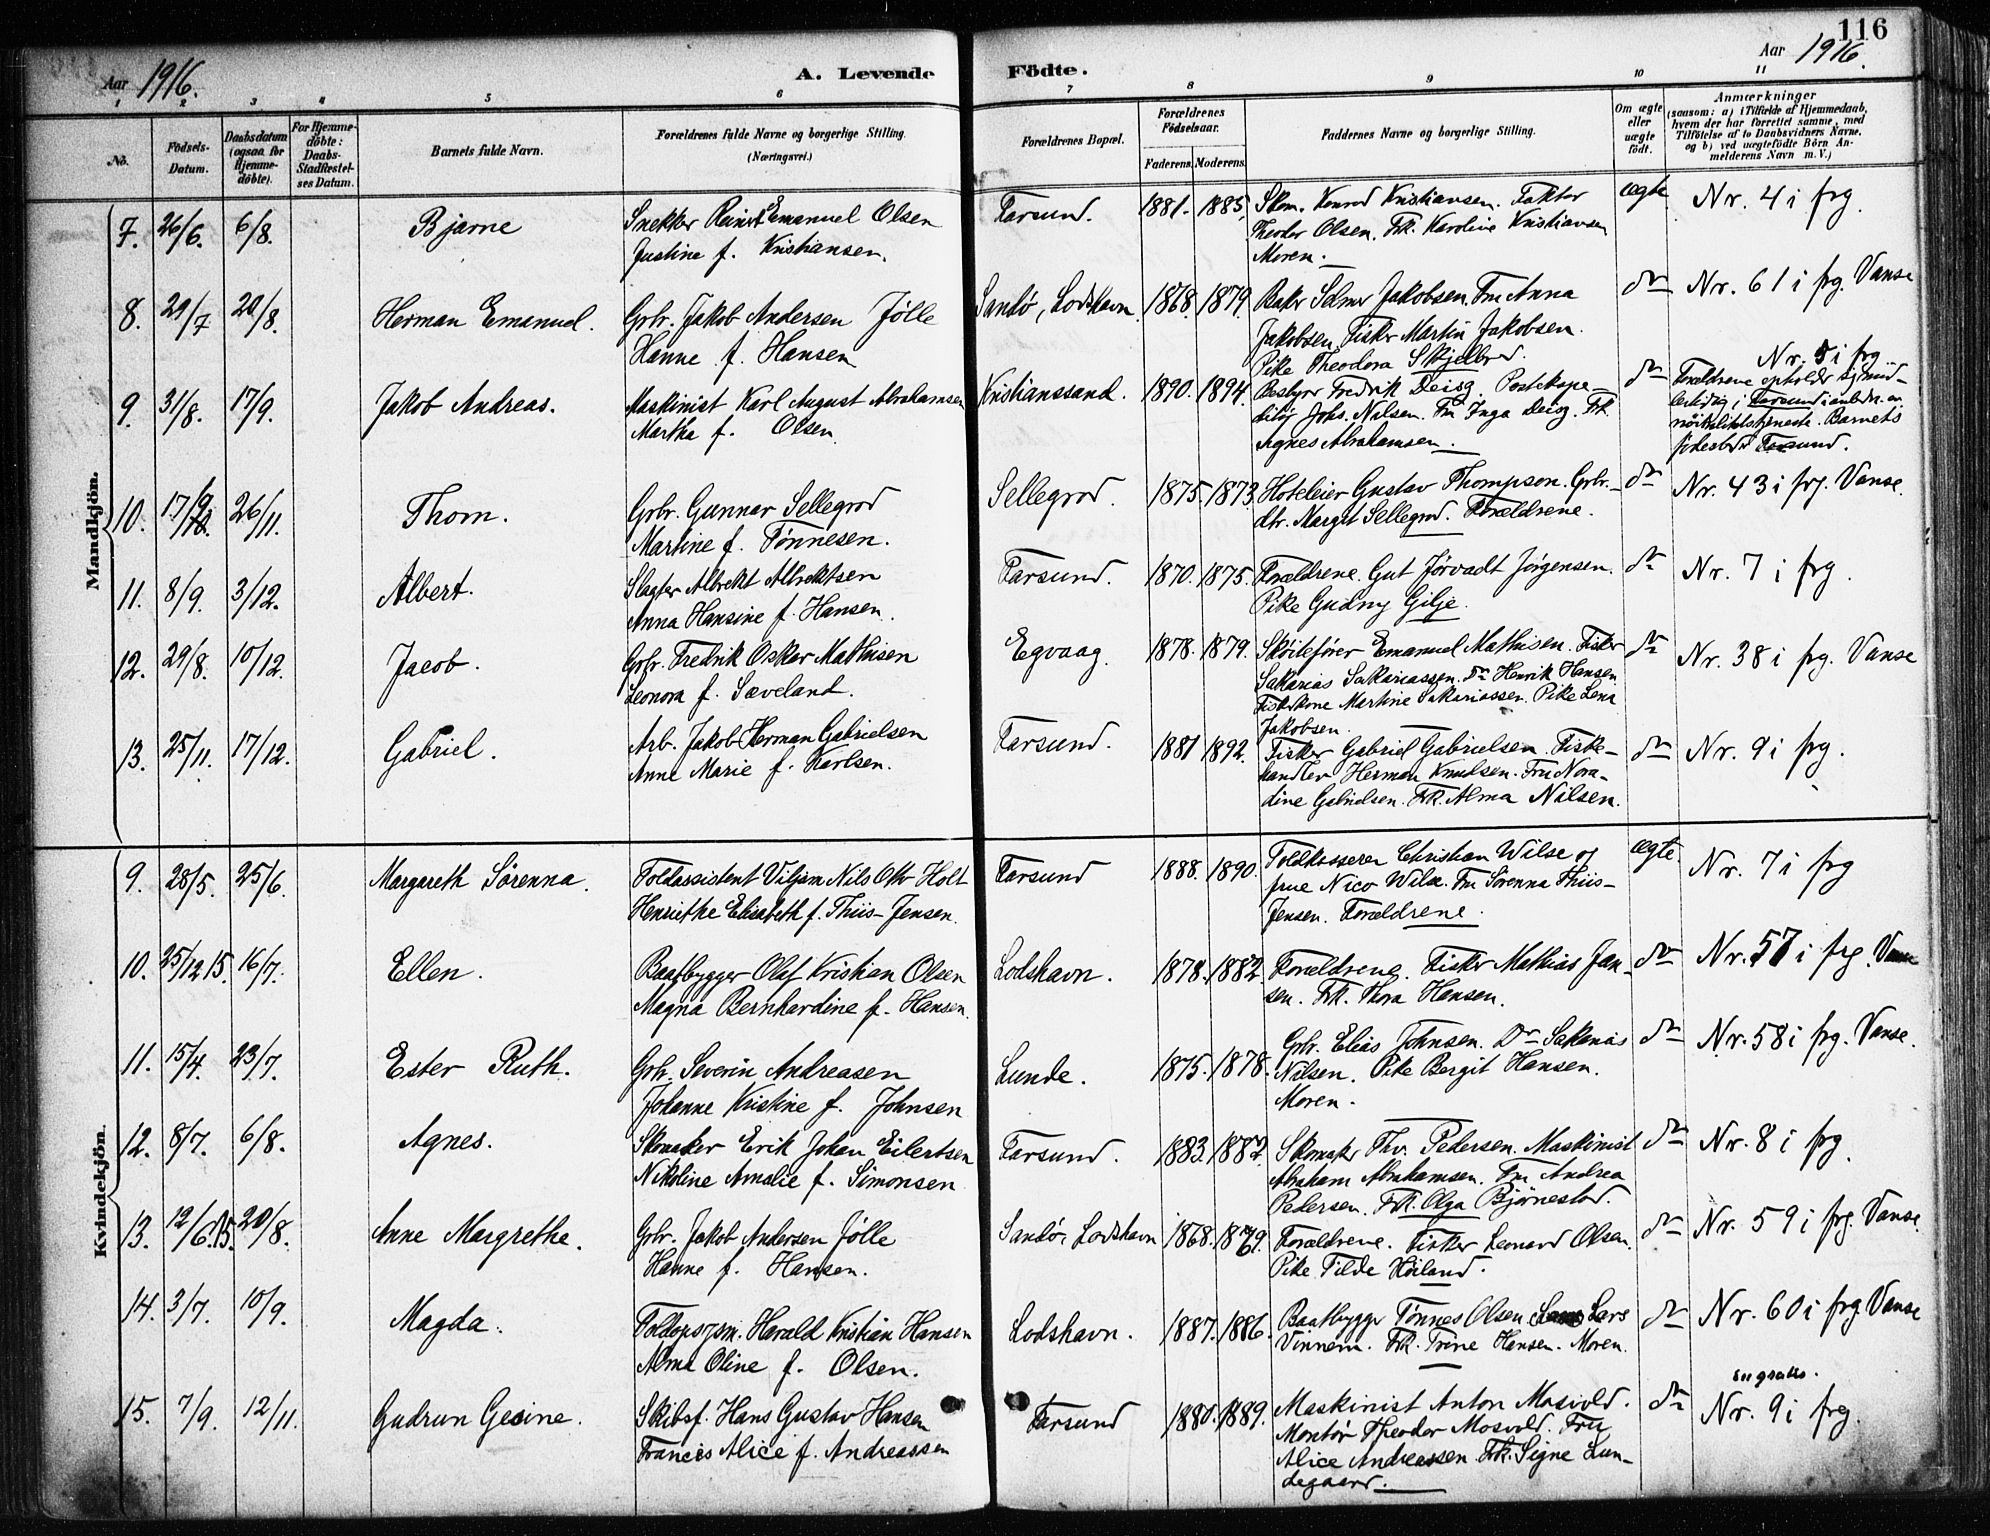 116
Aar 1916.
A. Levende
Födte.
Aar 1916.
1 2 3 4 5 6 7 8 9 10 11
No.
Födsels-Datum.
Daabsdatum (ogsaa for Hjemmedöbte).
For Hjemmedöbte: Daabs-Stadfæstelses Datum.
Barnets fulde Navn.
Forældrenes fulde Navne og borgerlige Stilling. (Næringsvei.)
Forældrenes Bopæl.
Forældrenes Födselsaar.
Faderens. Moderens.
Faddernes Navne og borgerlige Stilling.
Om ægte eller uægte födt.
Anmærkninger
(saasom: a) i Tilfælde af Hjemmedaab, hvem der har forrettet samme, med Tilföielse af to Daabsvidners Navne. og b) ved uægtefödte Börn Anmelderens Navn m. V.)
Mandkjön.
7. 26/6. 6/8. Bjarne
Snekker Reinert Emanuel Olsen
Justine f. Kristiansen.
Farsund. 1881. 1885.
Skom. Konrad Kristiansen. Faktor
Theodor Olsen. Frk. Karoline Kristiansen
Moren.
ægte Nr. 4 i frg.
8. 29/7 20/8. Herman Emanuel.
Grbr. Jakob Andersen Jölle
Hanne f. Hansen
Sandö, Lodshavn. 1868. 1879.
Baker Selmer Jakobsen. Fru Anna
Jakobsen. Fisker Martin Jakobsen.
Pike Theodora Skjelbred.
do Nr. 61 i frg. Vanse
9. 31/8. 17/9. Jakob Andreas.
Maskinist Karl August Abrahamsen
Martha f. Olsen
Kristianssand. 1890. 1894.
Bestyrer Fredrik Deisz. Postekspe-
ditör Johs. Nilsen. Fru Inga Deisz. Frk.
Agnes Abrahamsen.
do Nr. 5 i frg.
Forældrene opholder sig mid-
lertidig i Farsund i anledn. av
nöitralitetstjeneste. Barnets
födested: Farsund.
10. 17/9 26/11. Thom.
Grbr. Gunnar Sellegrod
Martine f. Tönnesen.
Sellegrod. 1875. 1873.
Hoteleier Gustav Thompson. Grbr.-
dtr. Margit Sellegrod. Forældrene.
do Nr. 43 i frg. Vanse.
11. 8/9. 3/12. Albert.
Slagter Albrekt Albrektsen
Anna Hansine f. Hansen.
Farsund. 1870. 1875.
Forældrene. Gut Jörvadt Jörgensen.
Pike Gudny Gilje.
do Nr. 7 i frg.
12. 29/8. 10/12. Jacob.
Grbr. Fredrik Oskar Mathisen
Leonora f. Sæveland.
Egvaag. 1878. 1879.
Sköiteförer Emanuel Mathisen. Fisker
Sakarias Sakariassen. Do Henrik Hansen
Fiskerkone Martine Sakariassen. Pike Lena
Jakobsen.
do Nr. 38 i frg. Vanse
13. 25/11. 17/12. Gabriel.
Arb. Jakob Herman Gabrielsen
Anne Marie f. Karlsen.
Farsund. 1881 1892.
Fisker Gabriel Gabrielsen. Fiske-
handler Herman Knudsen. Fru Nora-
dine Gabrielsen. Frk. Alma Nilsen.
do Nr. 9 i frg.
Kvindekjön.
9. 28/5. 25/6. Margareth Sörenna.
Toldassistent Viljam Nils Otto Holt
Henriethe Elisabeth f. Thiis-Jensen.
Farsund 1888. 1890.
Toldkasserer Christian Wilse og
frue Nico Wilse. Fru Sörenna Thiis-
Jensen. Forældrene.
ægte. Nr. 7 i frg
10. 25/12 15. 16/7. Ellen.
Baatbygger Olaf Kristian Olsen
Magna Bernhardine f. Hansen.
Lodshavn. 1878. 1882.
Forældrene. Fisker Mathias Jan-
sen. Frk. Thora Hansen.
do Nr. 57 i frg. Vanse
11. 15/4. 23/7. Ester Ruth.
Grbr. Severin Andreasen
Johanne Kristine f. Johnsen
Lunde. 1875. 1878.
Grbr. Elias Johnsen. Do Sakarias
Nilsen. Pike Bergit Hansen.
Moren.
do Nr. 58 i frg. Vanse.
12. 8/7. 6/8. Agnes.
Skomaker Erik Johan Eilertsen
Nikoline Amalie f. Simonsen
Farsund. 1883. 1882.
Skomaker Thv. Pedersen. Maskinist
Abraham Abrahamsen. Fru Andrea
Pedersen. Frk. Olga Björnestad.
do Nr. 8 i frg.
13. 12/6.15. 20/8. Anne Margrethe.
Grbr. Jakob Andersen Jölle
Hanne f. Hansen.
Sandö, Lodshavn 1868. 1879.
Forældrene. Fisker Leonard Olsen.
Pike Tilde Höiland.
do Nr. 59 i frg. Vanse
14. 3/7. 10/9. Magda.
Toldopsysm. Harald Kristian Hansen
Alma Oline f. Olsen.
Lodshavn. 1887. 1886.
Baatbygger Tönnes Olsen. Lars
Vinnem. Frk. Trine Hansen. Moren.
do Nr. 60 i frg Vanse
15. 7/9. 12/11. Gudrun Gesine.
Skibsf. Hans Gustav Hansen
Frances Alice f. Andreassen
Farsund 1880. 1889.
Maskinist Anton Mosvold.
Montör Theodor Mosvold. Fru
Alice Andreassen. Frk. Signe Lun-
degaard.
do Nr. 9 i frg.